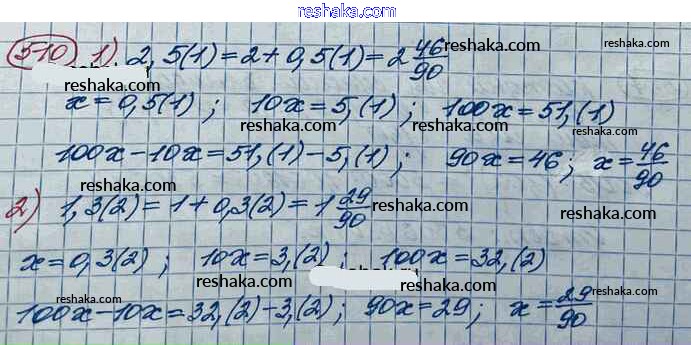 reshaka.com
reshaka.com
510 1) 2,5(1)=2+0,5(1)=2 46/90
reshaka.com reshaka.com reshaka.com
x=0,5(1); 10x=5,(1); 100x=51,(1)
reshaka.com reshaka.com reshaka.com
100x-10x=51,(1)-5,(1); 90x=46; x=46/90
reshaka.com reshaka.com reshaka.com
2) 1,3(2)=1+0,3(2)=1 29/90
reshaka.com reshaka.com
x=0,3(2); 10x=3,(2); 100x=32,(2)
reshaka.com reshaka.com reshaka.com
100x-10x=32,(2)-3,(2); 90x=29; x=29/90
reshaka.com reshaka.com reshaka.com
reshaka.com